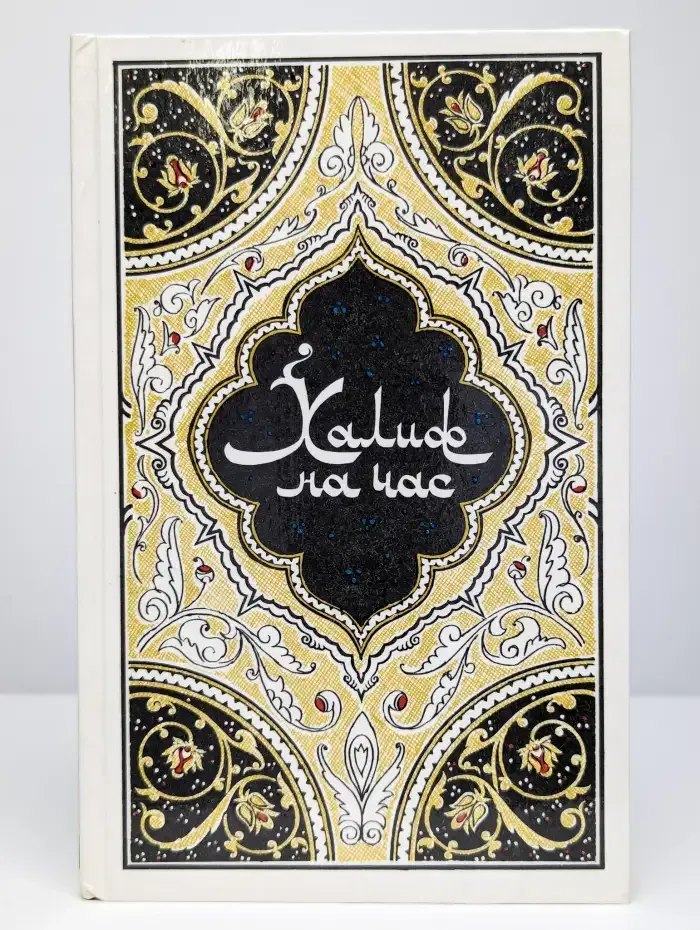 Халиф
на час